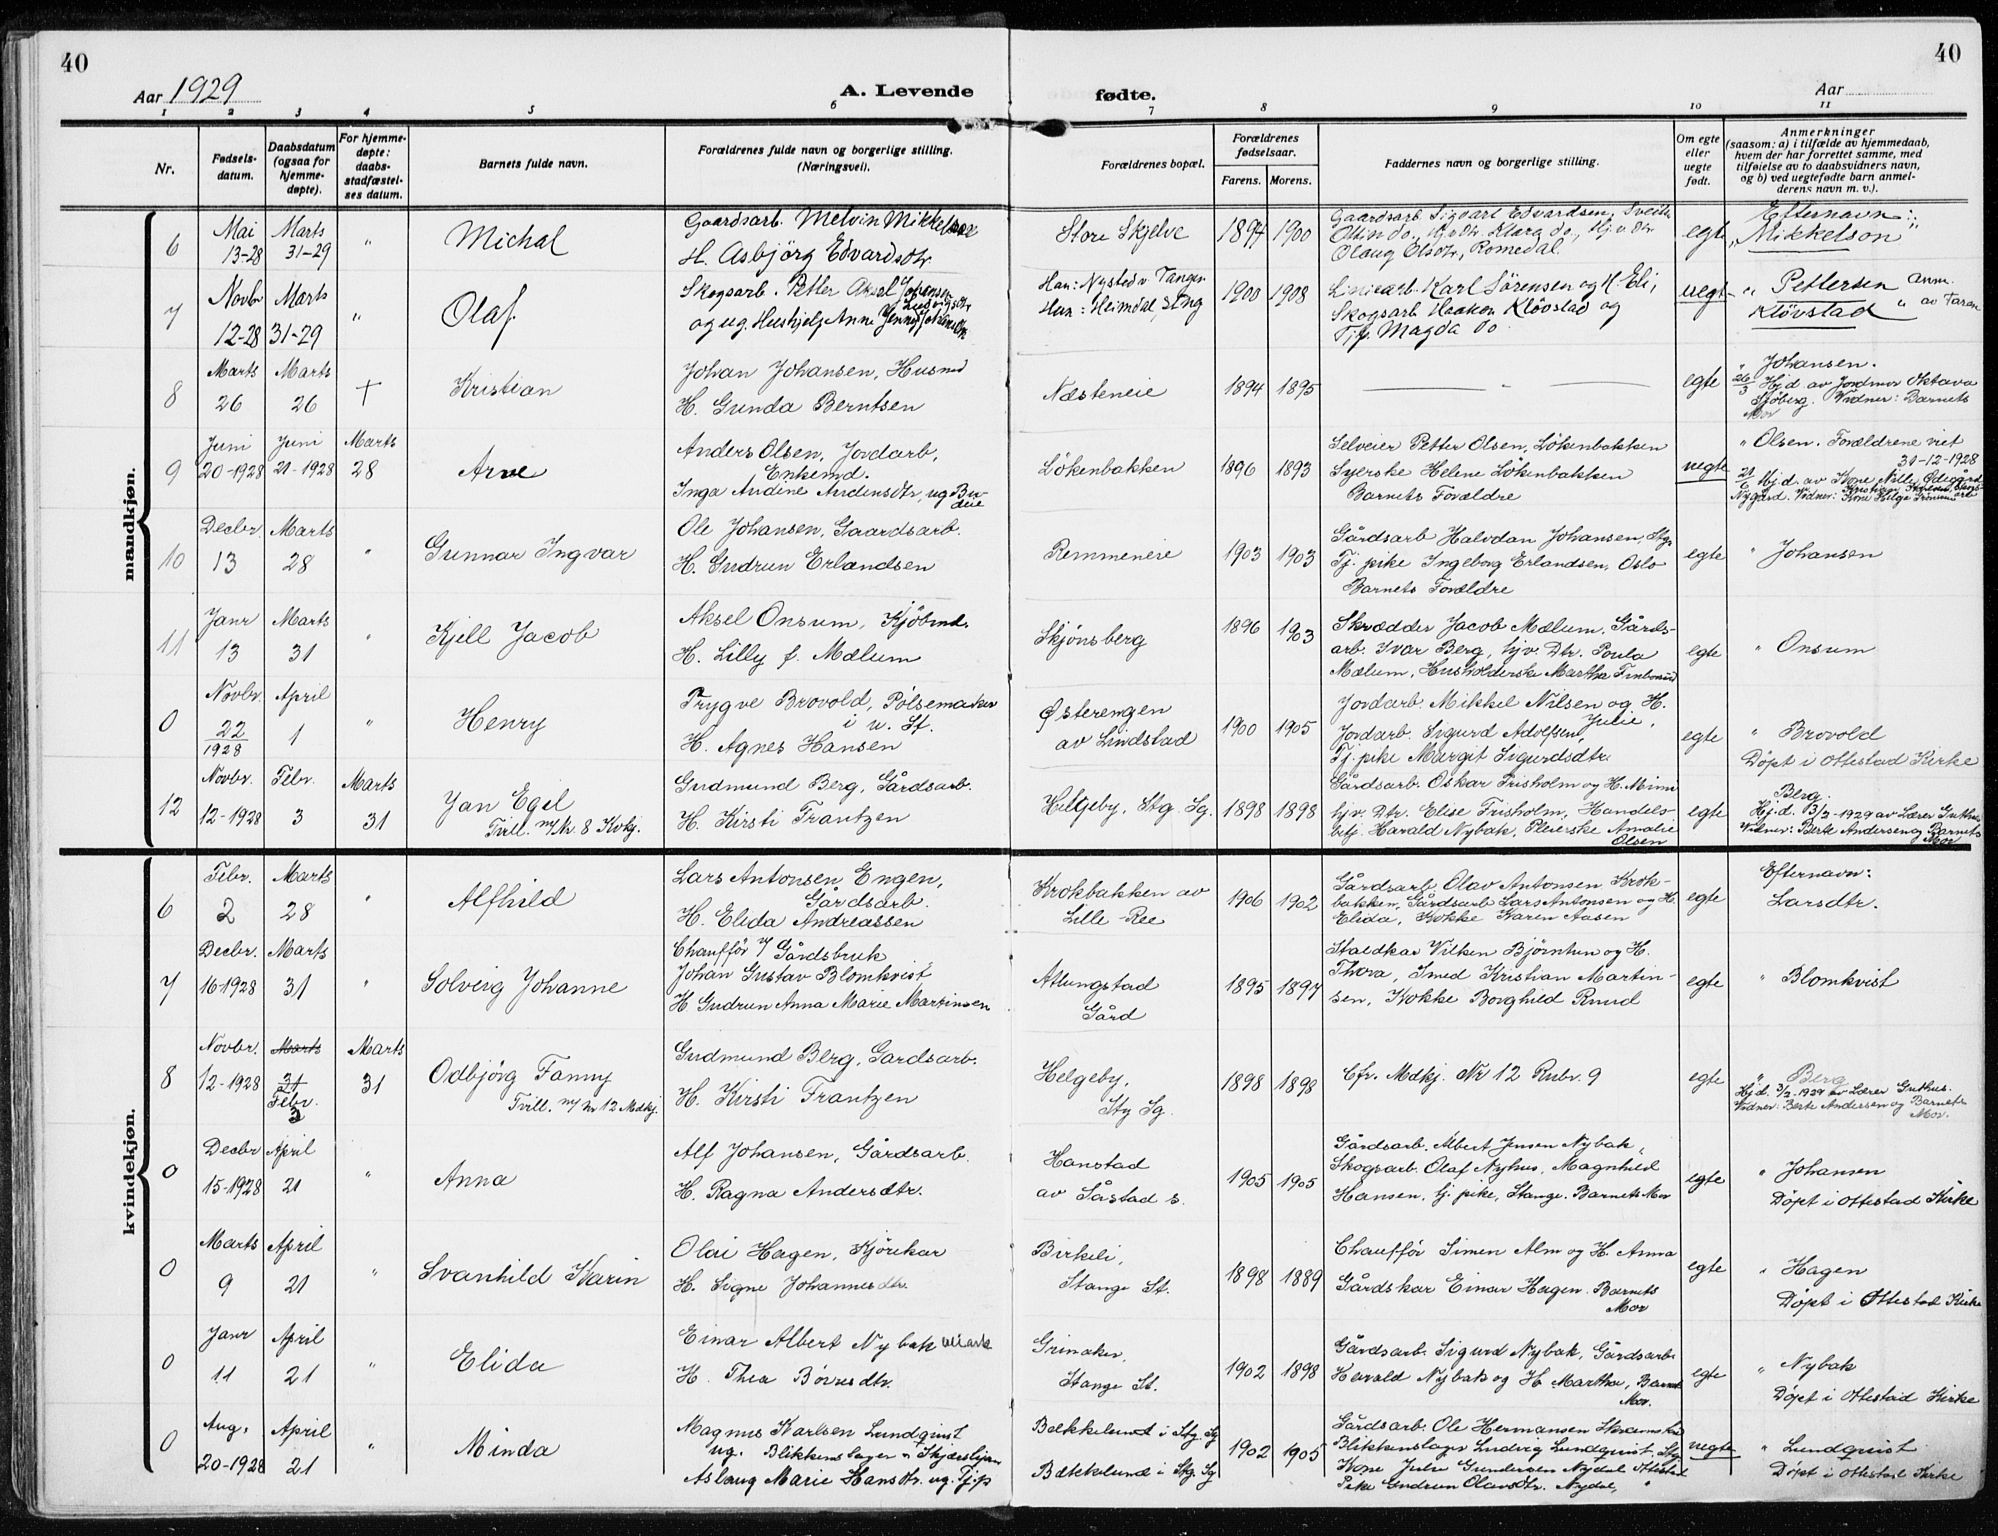 40
40
Aar 1929
A. Levende
fødte.
Aar
1 2 3 4 5 6 7 8 9 10 11
Nr.
Fødsels-
datum.
Daabsdatum
(ogsaa for
hjemme-
døpte).
For hjemme-
døpte:
daabs-
stadfæstel-
ses datum.
Barnets fulde navn.
Forældrenes fulde navn og borgerlige stilling.
(Næringsvei).
Forældrenes bopæl.
Forældrenes
fødselsaar.
Farens. Morens.
Faddernes navn og borgerlige stilling.
Om egte
eller
uegte
født.
Anmerkninger
(saasom: a) i tilfælde av hjemmedaab,
hvem der har forrettet samme, med
tilføielse av to daabsvidners navn,
og b) ved uegtefødte barn anmel-
derens navn m. v.).
mandkjøn.
6
Mai
13-28
Marts
31-29
"
Michal
Gaardsarb. Melvin Mikkelsen
H. Asbjörg Edvardsdtr.
Store Skjelve
1894 1900
Gaardsarb. Sigvart Edvardsen, Sveits
Olin do., Hjv. dtr. Klara do., Hj.v. dtr
Olaug Olsdtr, Romedal
egte
Efternavn:
"Mikkelson"
7
Novbr
12-28
Marts
31-29
"
Olaf.
Skogsarb. Petter Aksel Johansen
og ug Hushjelp Anne Jenny Ludvigsdtr
Han: Nystod v. Tangen
Hun: Heimdal, Stng
1900 1908
Liniearb. Karl Sörensen og H. Eli,
Skogsarb Haakon Klövstad og
Tj.p. Magda do
uegt
" Pettersen anm.
Klövstad " av Faren
8
Marts
26
Marts
26
+
Kristian
Johan Johansen, Husmd
H. Gunda Berntsen
Næsteneie
1894 1895
— " —
egte
" Johansen.
26/3 Hjd. av Jordmor Oktava
Sjöberg. Vidner: Barnets
Mor
9
Juni
20-1928
Juni
21-1928
Marts
28
Arne
Anders Olsen, Jordarb,
Enkemd.
Inga Andine Andersdtr, ug Bu-
deie
Lökenbakken
1896 1893
Selveier Petter Olsen, Lökenbakken
Syerske Helene Lökenbakken
Barnets Forældre
uegte
" Olsen. Forældrene viet
31-12-1928
21/6 Hjd. av Kone Nilly Ödegård
Nygård. Vidner:
10
Decbr
13
Marts
28
"
Gunnar Ingvar
Ole Johansen, Gaardsarb.
H. Gudrun Erlandsen
Remmeneie
1903 1903
Gårdsarb Halvdan Johansen, Stg.
Tj. pike Ingeborg Erlandsen, Oslo
Barnets Forældre
egte
" Johansen
11
Janr
13
Marts
31
"
Kjell Jacob
Aksel Onsum, Kjöbmd.
H. Lilly f. Mælum
Skjönsberg
1896 1903
Skrædder Jacob Mælum, Gårds-
arb. Ivar Berg, hjv. Dtr. Poula
Mælum, Husholderske Marthe Finborud
egte
" Onsum
0
Novbr.
22
1928
April
1
"
Henry
Trygve Brovold, Pölsemaker
i u. St.
H. Agnes Hansen
Østerengen
av Lindstad
1900 1905
Jordarb. Mikkel Nilsen og H.
Julie,
Jordarb. Sigurd Adolfsen
Tj. pike Margit Sigurdsdtr.
egte
" Brovold
Döpt i Ottestad Kirke
12
Novbr.
12-1928
Febr.
3
Marts
31
Jan Egil
Tvill. m/Nr. 8 Kvkj.
Gudmund Berg, Gårdsarb.
H. Kirsti Frantzen
Helgeby, Stg. Sg.
1898 1898
Gårdsarb. Oskar Frisholm og H. Minni
hjv. Dtr. Elise Frisholm, Handels-
betj. Harald Nybak, Pleierske Amalie
Olsen
egte
Berg.
Hj.d. 3/2-1929 av Lærer Guthus
Vidner: Berte Andersen og Barnets
Mor
kvindekjøn.
6
Febr.
2
Marts
28
"
Alfhild
Lars Antonsen Engen,
Gårdsarb.
H. Elida Andreassen
Krokbakken av
Lille-Ree
1906 1902
Gårdsarb. Olav Antonsen Krok-
bakken, Gårdsarb Lars Antonsen og H.
Elida, Kokke Karen Aasen
egte
Efternavn:
Larsdtr.
7
Decbr.
16-1928
Marts
31
"
Solveig Johanne
Chauffør v/ Gårdsbruk
Johan Gustav Blomkvist
H. Gudrun Anna Marie Martinsen
Atlungstad
Gård
1895 1897
Staldkar Vilken Björnhun og H.
Thora, Smed Kristian Martin-
sen, Kokke Borghild Ruud
egte
" Blomkvist
8
Novbr.
12-1928
Marts
31
Febr.
3
Marts
31
Odbjörg Fanny
Tvill. m/Nr 12 Mdkj.
Gudmund Berg, Gardsarb.
H. Kirsti Frantzen
Helgeby,
Stg Sg.
1898 1898
Cfr. Mdkj. Nr 12 Rubr. 9
egte
" Berg
Hj.d. 3/2-1929 av Lærer Guthus.
Vidner: Berte Andersen og Barnets
Mor.
0
Decbr
15-1928
April
21
"
Anna
Alf Johansen, Gårdsarb.
H. Ragna Andersdtr.
Hanstad
av Såstad s.
1905 1905
Gårdsarb. Albert Jensen Nybak,
Skogsarb. Olaf Nyhus, Magnhild
Hansen, tj. pike, Stange. Barnets Mor
egte
" Johansen
Döpt i Ottestad Kirke
0
Marts
9
April
21
"
Svanhild Karin
Olai Hagen, Kjörekar
H. Signe Johannesdtr.
Birkeli,
Stange St.
1898 1889
Chaufför Simen Alm og H. Anna
Gårdskar Einar Hagen. Barnets
Mor
egte
" Hagen
Döpt i Ottestad Kirke
0
Janr
11
April
21
"
Elida
Einar Albert Nybak
H. Thea Bövresdtr.
Grimaker,
Stange St.
1902 1898
Gårdsarb. Sigurd Nybak, Gårdsarb.
Harald Nybak og H. Martha, Barnets
Mor.
egte
" Nybak
Döpt i Ottestad Kirke
0
Aug.
20-1928
April
21
"
Minda
Magnus Karlsen Lundquist
ug. Blikkenslager
Aslaug Marie Hansdtr. ug. Tj.p
Bækkelund i Stg. Sg
Bækkelund i Stg. Sg
1902 1905
Gårdsarb. Ole Hermansen
Blikkenslager Ludvig Lundquist, Stg.
Kone Julie Gundersen Nydal Ottestad
Pike Gudrun Olavsdtr. Nydal, "
uegte
" Lundquist
Döpt i Ottestad Kirke